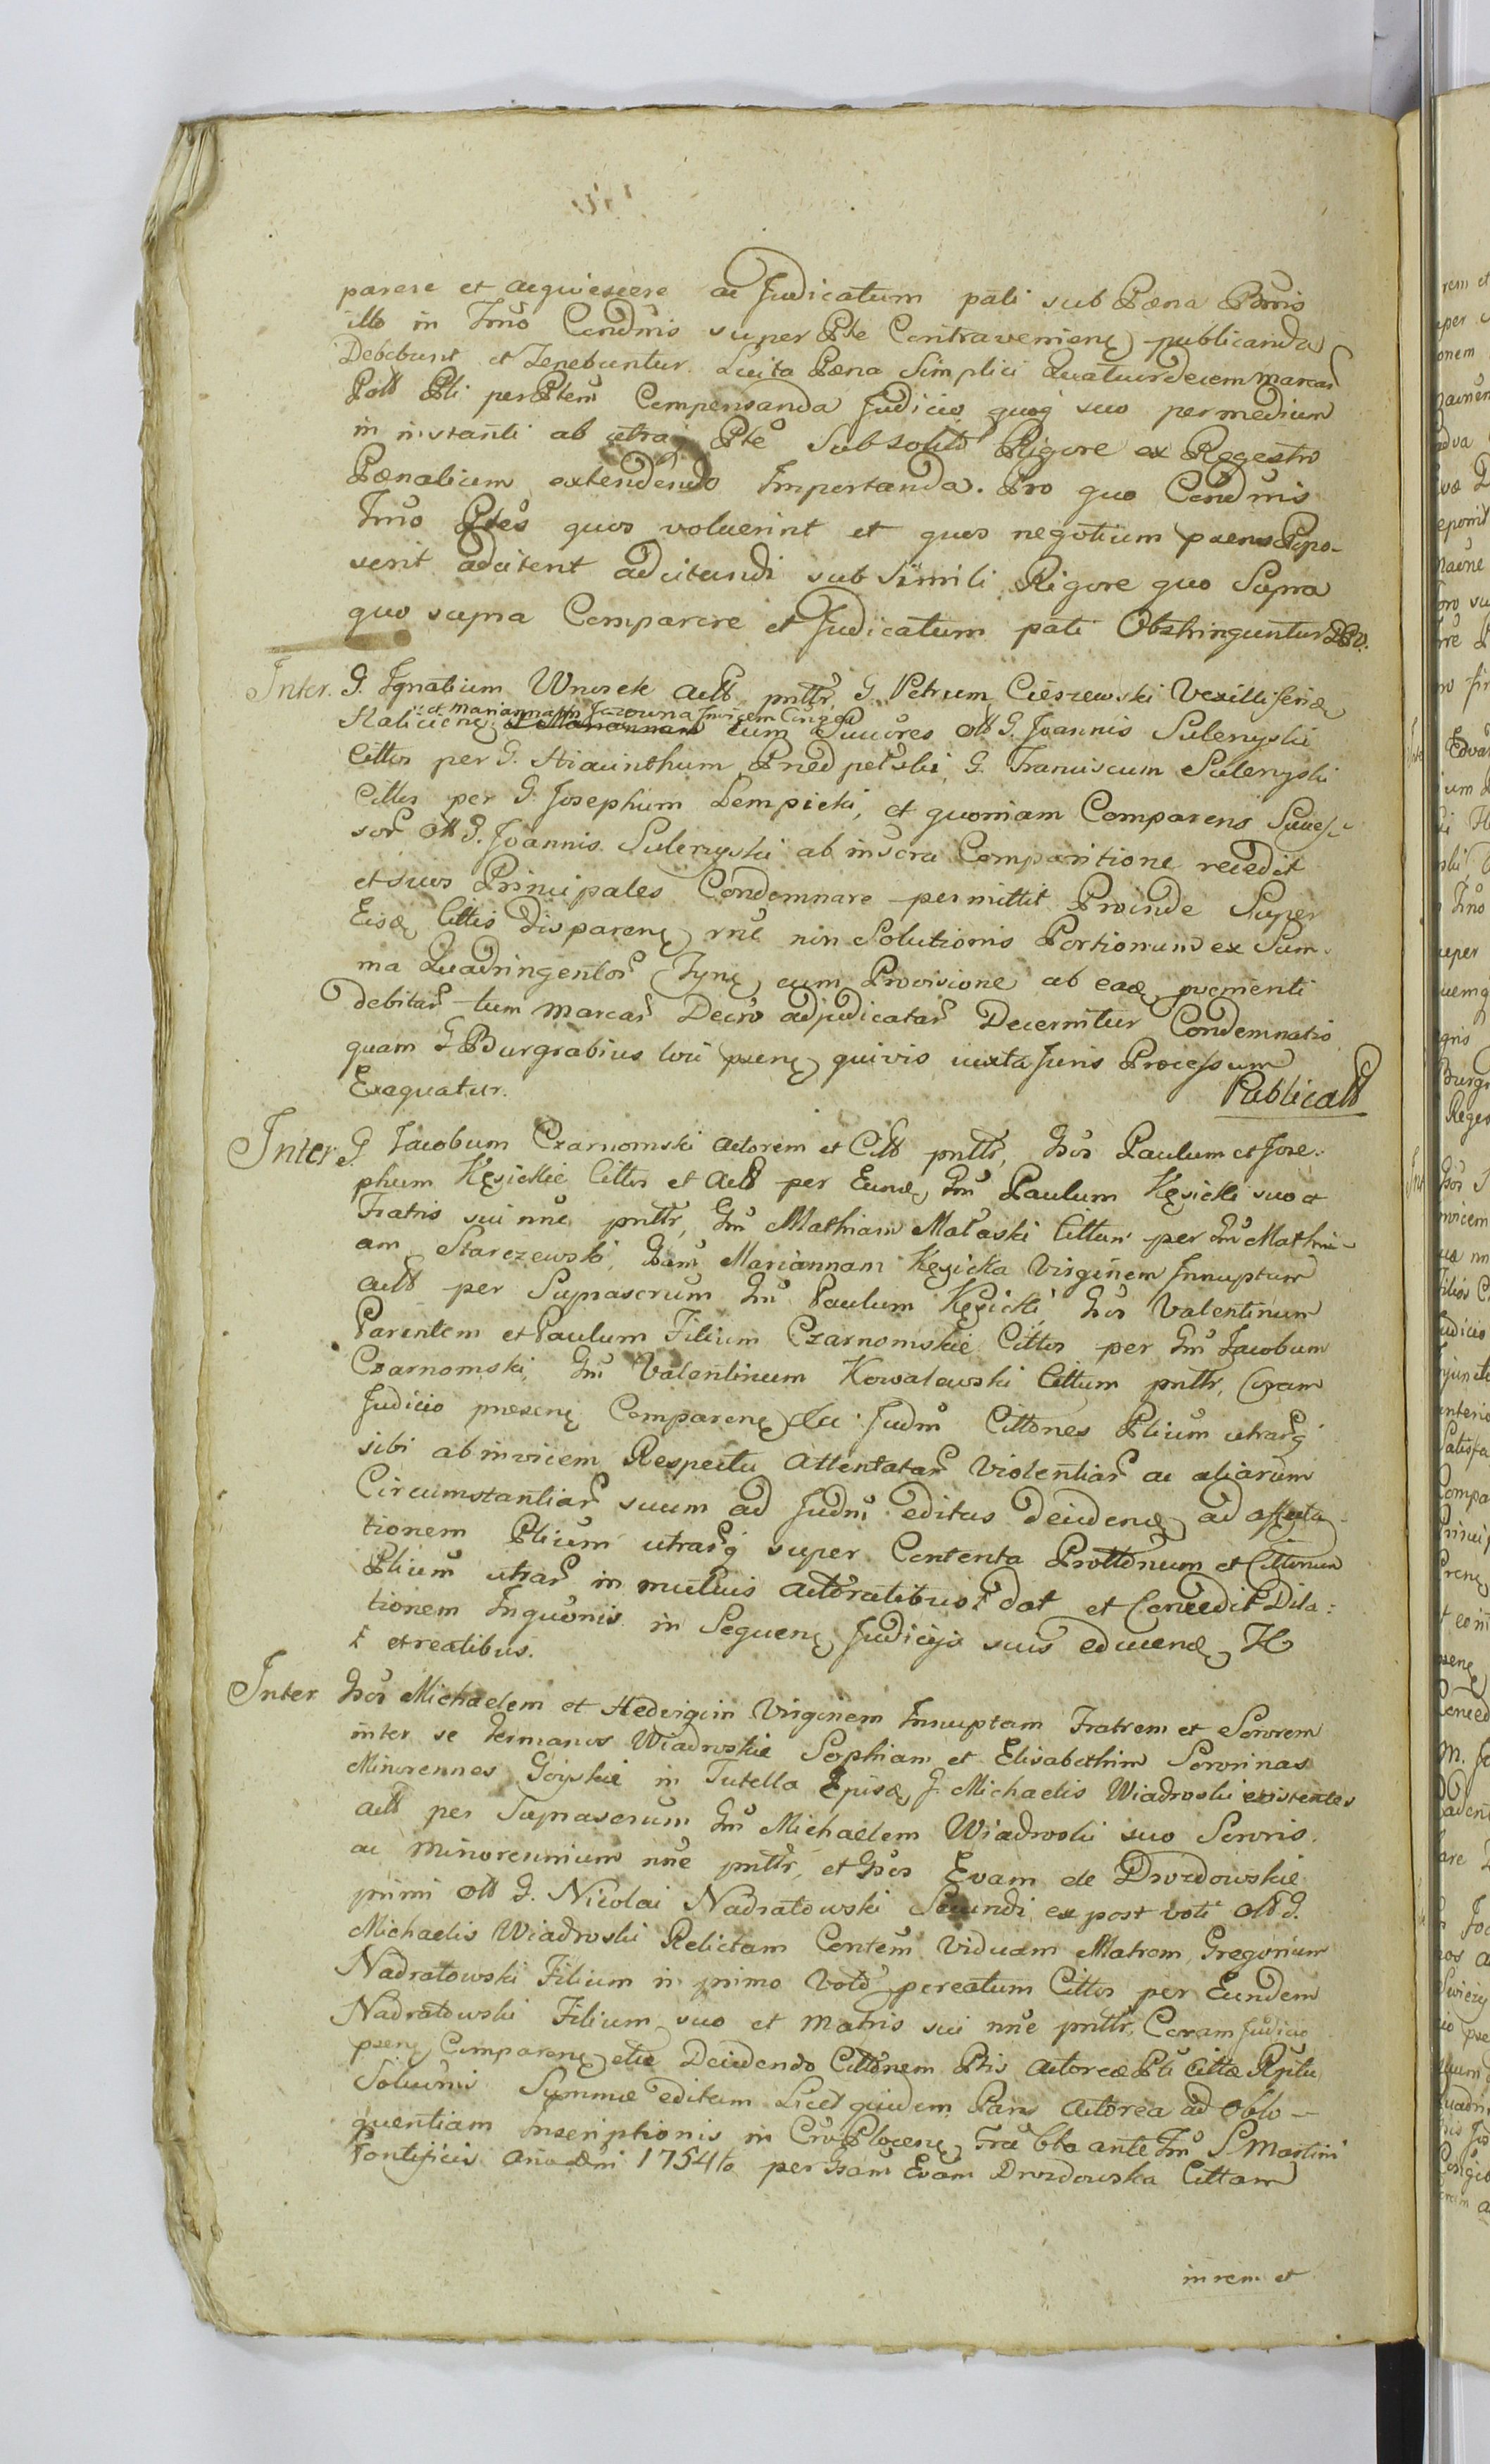 parere et acquiescere ac Judicatum pati sub Pæna Bnnis
illo in Tmo Condnis super Pte Contravenienę publicanda
Debebunt et Tenebuntur. Luita Pæna Simplici Quatuordecem marcar
Polł Pti per Ptem Compensanda Judicio quoq suo per medium
in instanti ab utraq Pte Sub solito Rigore ex Regestro
Pænalium extendendo Importanda. Pro quo Condnis
Tmo Ptes quos voluerint et quos negotium præns Popo-
serit adcitent adcitandi sub Simili Rigore quo Supra
quo supra Comparere et Judicatum pati Obstringuntur
Inter. G. Ignatium Wnorek actł pnttr, G. Petrum Cieszewski Vexilliferidæ
et Mariannam Jnvicem Cinges
Halicienę cum Succores olł G. Joannis Sulenyski
Cittos per G. Hiacinthum Przedpełski, G. Franciscum Sulenyski
Cittu per G. Josephum Lempicki, et quoniam Comparens Succes-
sor olł G. Joannis Sulenyski ab insera Comparitione recedit
et suos Principales Condemnare permittit Proinde Super
Eisdę Cittis disparenę rne non Solutionis Portionum ex Sum-
ma Quadringentor Tynę cum Provisione ab eadę provenienti
debitar tum marcar Decro adjudicatar Decernitur Condemnatio
quam G Burgrabius loci prænę quivis iuxta Juris Processum
Exequatur.
Publicatł
Inter G. Jacobum Czarnomski actorem et Citł pnttr, Gsos Paulum et Jose-
phum Kęsickie Cittos et Actł per Eundę Gm Paulum Kęsicki suo et
Fratris sui nne pnttr, Gm Mathiam Małaski Cittum per Gm Mathi-
am Starczewski, Gsam Mariannam Kęsicka Virginem Innuptam
actł per Supnascrum Gm Paulum Kęsicki Gsos Valentinum
Parentem et Paulum Filium Czarnomskie Cittos per Gm Jacobum
Czarnomski, Gm Valentinum Kowalewski Cittum pnttr, Coram
Judicio præsenę Comparenę Judm Cittones Ptium utrarq
sibi ab invicem Respectu Attentatar Violentiar ac aliarum
Circumstantiar suum ad Judm editas decidenę ad affecta-
tionem Ptium utrarq super Contenta Prottonum et Cittonum
Ptium utrar in mutuis actoratibus ł dat et Concedit Dila:
tionem Inquonis in Sequenę Judicijs suis educenę
ł et reatibus.
Inter Gsos Michaelem et Hedvigim Virginem Innuptam Fratrem et Sororem
inter se Germanos Wiadroskie Sophiam et Elisabethim Sororinas
Minorennes Goyskie in Tutella Episdę G. Michaelis Wiadroski existentes
actł per Supnascrum Gm Michaelem Wiadroski suo Sororis
ac Minorennium nne pnttr, et Gsos Evam de Drozdowskie
primi olł G. Nicolai Nadratowski Secundi ex post voti olł G.
Michaelis Wiadroski Relictam Contem Viduam Matrem, Gregorium
Nadratowski Filium in primo Voto pereatum Cittos per Eundem
Nadratowski Filium suo et matris sui nne pnttr, Coram Judicio
prænę Comparenę Decidendo Cittonem Ptis Actoreæ Pti Cittæ Rptu
Solucnis Summæ editam Licet quidem Pars Actorea ad Oblo-
quentiam Inscriptionis in Cro Plocenę Fra bba ante Fm S. Martini
Pontificis Ano dni 1754to per Gsam Evam Drozdowska Cittam
in rem et